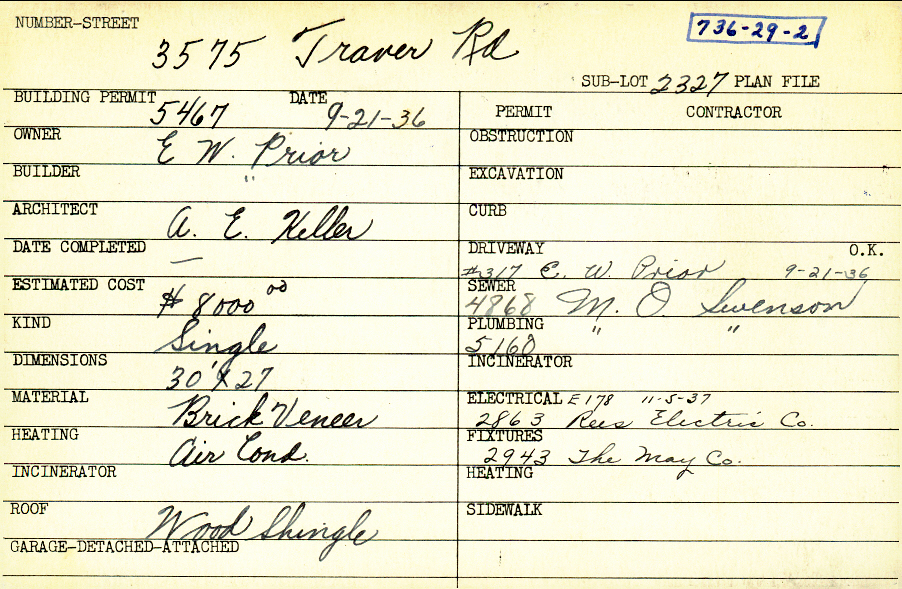 NUMBER-STREET
3575 Traver Rd
736-29-2
SUB-LOT 2327 PLAN FILE
BUILDING PERMIT 5467 DATE 9-21-36
OWNER E W. Prior
BUILDER "
ARCHITECT A. E. Keller
DATE COMPLETED —
ESTIMATED COST $ 8000 00
KIND Single
DIMENSIONS 30' X 27
MATERIAL Brick Veneer
HEATING Air Cond.
INCINERATOR
ROOF Wood Shingle
GARAGE-DETACHED-ATTACHED
PERMIT CONTRACTOR
OBSTRUCTION
EXCAVATION
CURB
DRIVEWAY O.K.
#317 E. W. Prior 9-21-36
SEWER
4868 M. O. Swenson
PLUMBING " "
5160
INCINERATOR
ELECTRICAL E178 11-5-37
2863 Rees Electric Co.
FIXTURES
2943 The May Co.
HEATING
SIDEWALK